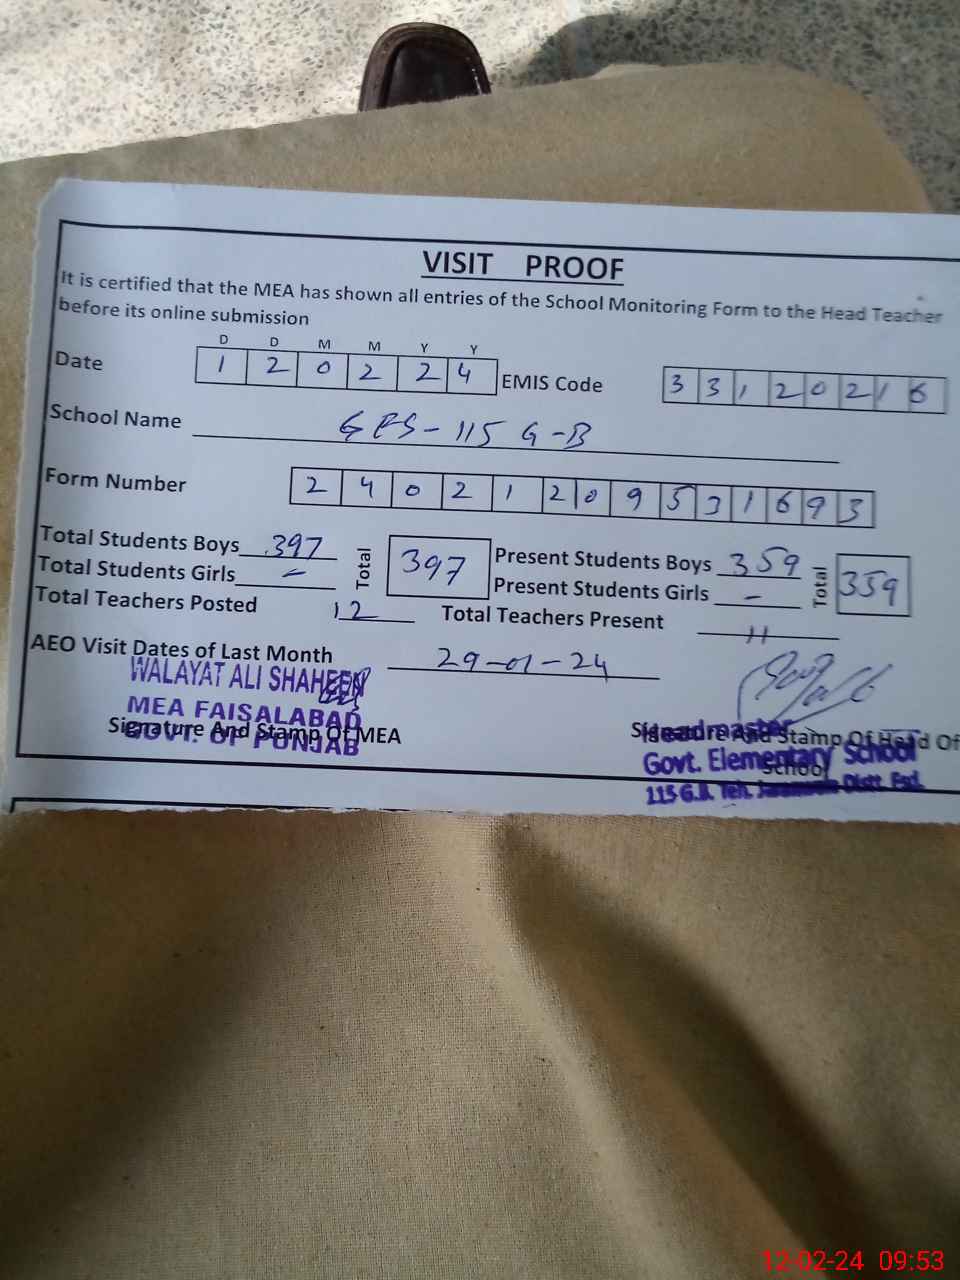 VISIT PROOF
It is certified that the MEA has shown all entries of the School Monitoring Form to the Head Teacher
before its online submission
D D M M Y Y
Date 1 2 0 2 2 4 EMIS Code 3 3 1 2 0 2 1 6
School Name GES-115 G-B
Form Number 2 4 0 2 1 2 0 9 5 3 1 6 9 3
Total Students Boys 397 Total 397 Present Students Boys 359 Total 359
Total Students Girls - Present Students Girls -
Total Teachers Posted 12 Total Teachers Present 11
AEO Visit Dates of Last Month 29-01-24
WALAYAT ALI SHAHEEN
MEA FAISALABAD
GOVT. OF PUNJAB
Signature And Stamp Of MEA
Signature And Stamp Of Head Of
School
Headmaster
Govt. Elementary School
115 G.B. Teh. Distt. Fsd.
12-02-24 09:53